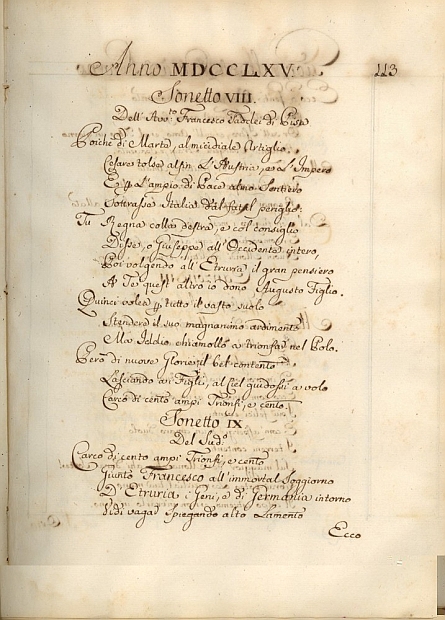 Anno MDCCLXV. 113
Sonetto VIII.
Dell'Avv.to Francesco Tadclei di Pisa
Poiche di Marte, al micidiale Artiglio
Cesare tolse alfin L'Austria, e L'Impero
E p L'ampio di Pace almo Sentiero
Sottrasse Italia dal fatal periglio:
Tu Regna colla destra, e col consiglio
Disse, o Giuseppe all'Occidente intero,
Poi volgendo all'Etruria il gran pensiero
A Te quest'altro io dono Augusto Figlio.
Quinci volea p tutto il vasto suolo
Stendere il suo magnanimo ardimento
Ma Iddio chiamollo a trionfar nel Polo.
Pero di nuove Glorie il bel contento
Lasciando ai Figli, al Ciel guidossi a volo
Carco di cento ampi Trionfi, e cento
Sonetto IX
Del Sud.o
Carco di cento ampi Trionfi, e cento
Giunto Francesco all'immortal Soggiorno
D'Etruria i Geni, e di Germania intorno
Vidi vagar Spiegando alto Lamento
Ecco